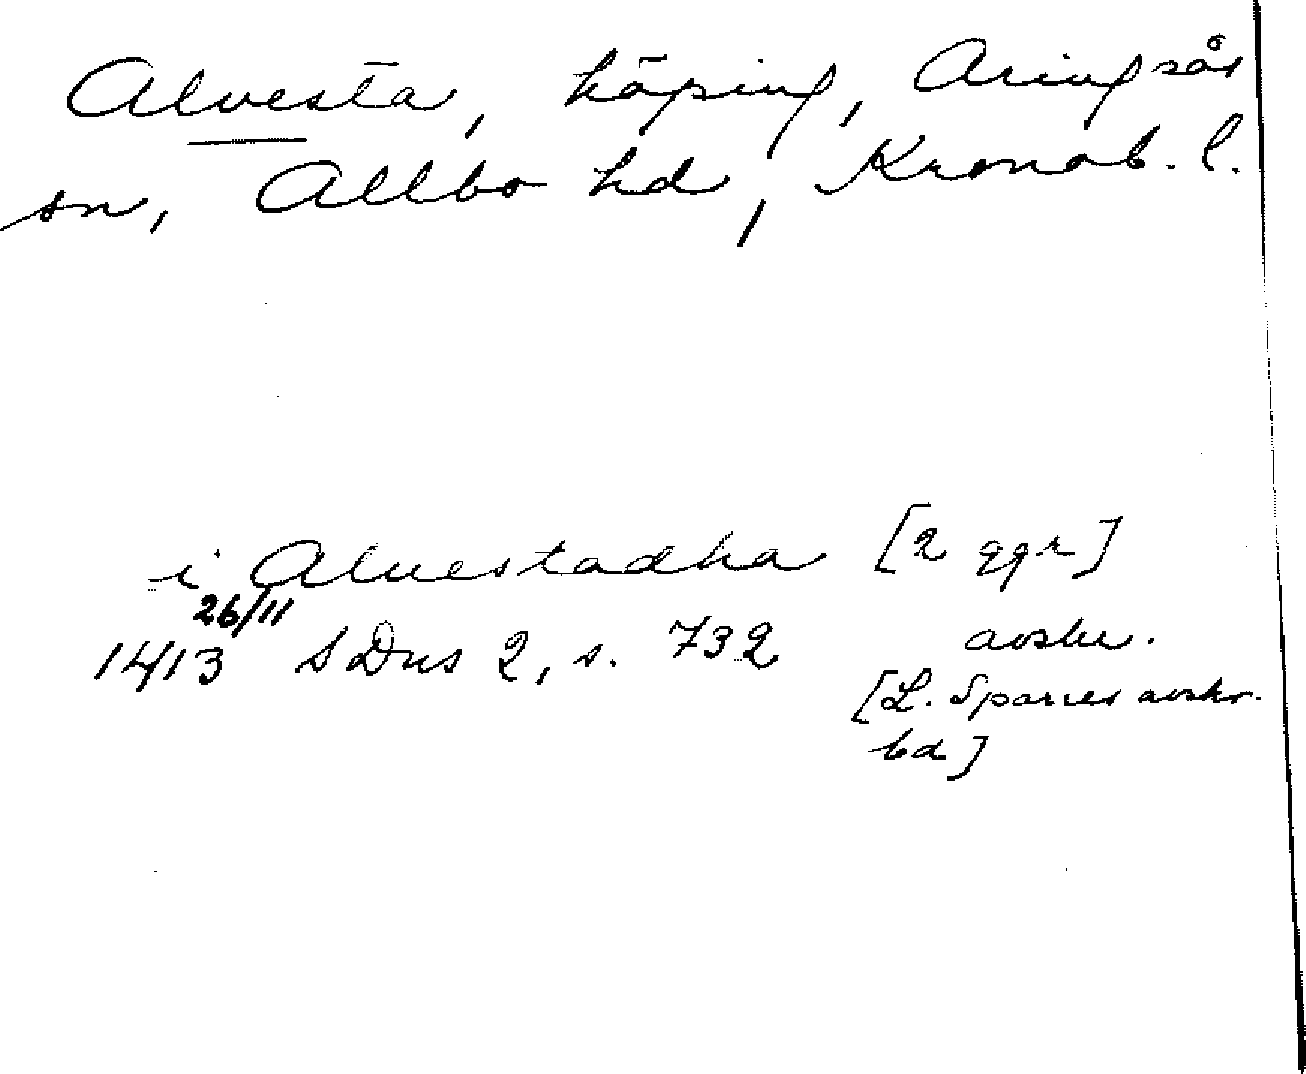 Alvesta, köping, Aringsås
sn, Allbo hd, Kronob. l.
i Aluestadha [2 ggr]
26/11
1413 SDns 2, s. 732 avskr.
[L. Sparres avskr.
bd]